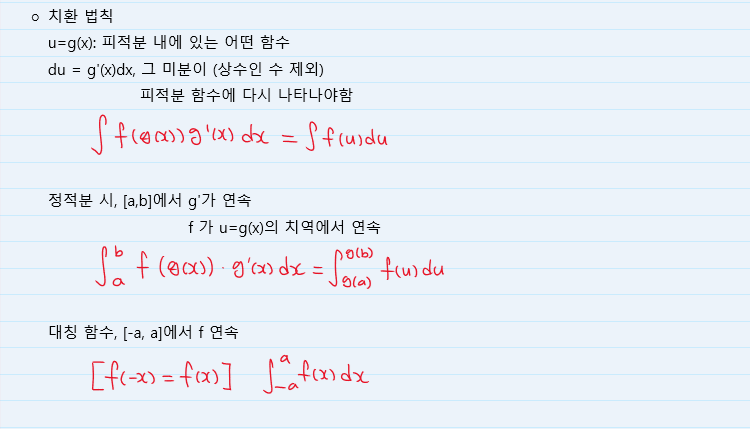 치환 법칙
u=g(x): 피적분 내에 있는 어떤 함수
du = g'(x)dx, 그 미분이 (상수인 수 제외)
피적분 함수에 다시 나타나야함
∫ f(g(x)) g'(x) dx = ∫ f(u) du
정적분 시, [a,b]에서 g'가 연속
f 가 u=g(x)의 치역에서 연속
∫_a^b f(g(x)) · g'(x) dx = ∫_{g(a)}^{g(b)} f(u) du
대칭 함수, [-a, a]에서 f 연속
[f(-x) = f(x)] ∫_{-a}^a f(x) dx